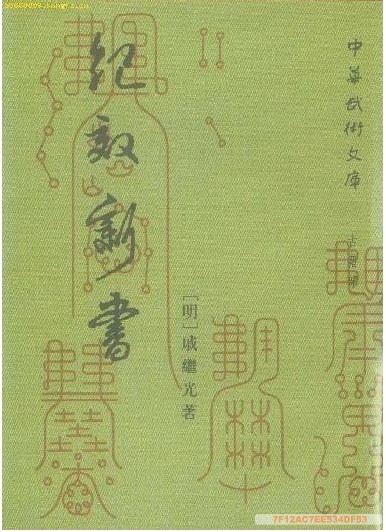 中华武術文庫
古籍部
纪效新書
［明］戚繼光著
7F12AC7EE534DF53